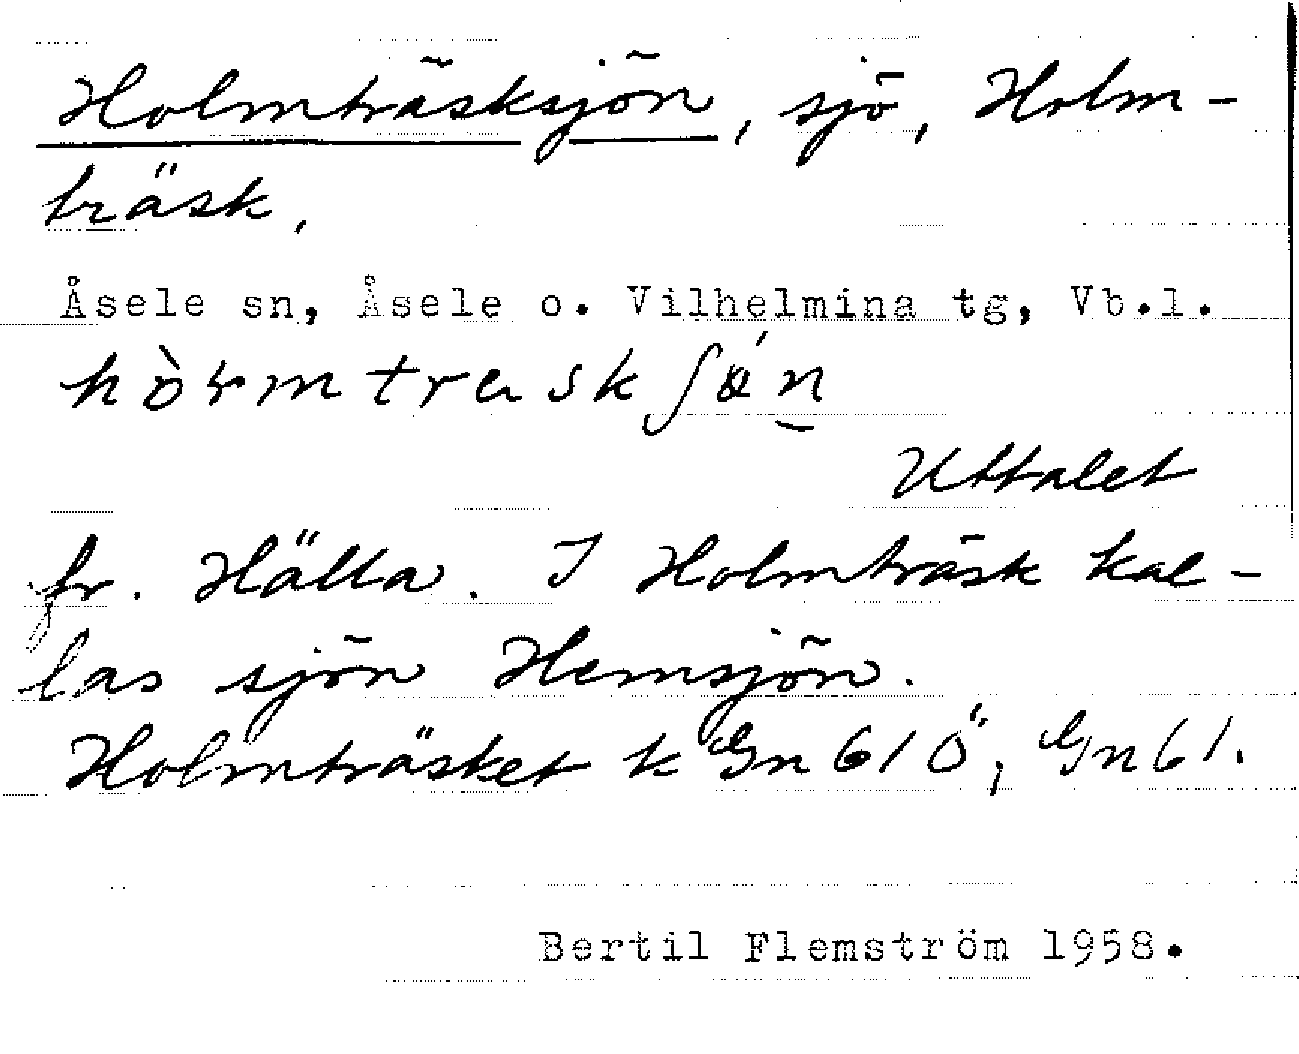 Holmträsksjön, sjö, Holm-
träsk.
Åsele sn, Åsele o. Vilhelmina tg, Vb.l.
Uttalet
fr. Hälla. I Holmträsk kal-
las sjön Hemsjön.
Holmträsket k Gn 61 Ö, Gn 61.
Bertil Flemström 1958.